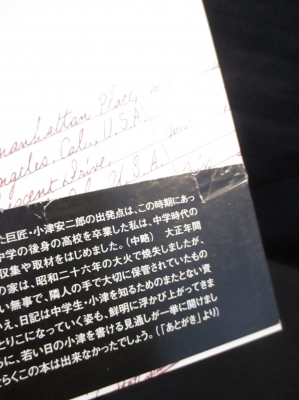 manhattan Place,
Angeles. Cal., U.S.A.
Crescent Drive,
U.S.A.
た巨匠・小津安二郎の出発点は、この時期にあっ
中学の後身の高校を卒業した私は、中学時代の
収集や取材をはじめました。（中略）　大正年間
の家は、昭和二十六年の大火で焼失しましたが、
い無事で、隣人の手で大切に保管されていたもの
え、日記は中学生・小津を知るためのまたとない資
とりこになっていく姿も、鮮明に浮かび上がってきま
に、若い日の小津を書ける見通しが一挙に開けまし
らくこの本は出来なかったでしょう。（「あとがき」より）